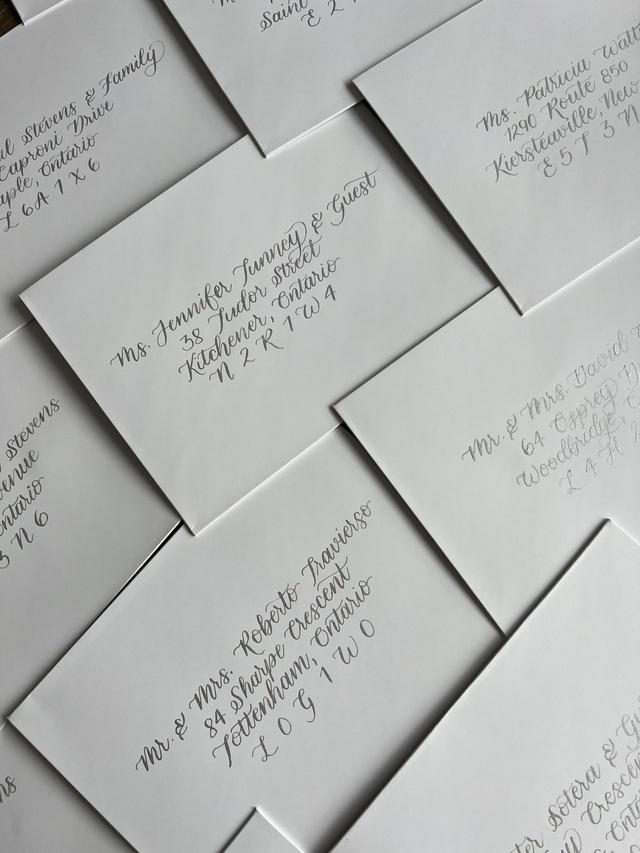 Ms.
Saint
E 2
Stevens & Family
Caproni Drive
Ontario
L 6 A 1 X 6
Ms. Patricia
1290 Route 850
Kiersteadville, New
E 5 T 3 N
Ms. Jennifer Tunney & Guest
38 Tudor Street
Kitchener, Ontario
N 2 R 1 W 4
Mr. & Mrs. David
64 Osprey
Woodbridge,
L 4 H
Stevens
3 N 6
Mr. & Mrs. Roberto Travierso
84 Sharpe Crescent
Tottenham, Ontario
L 0 G 1 W 0
Sotera &